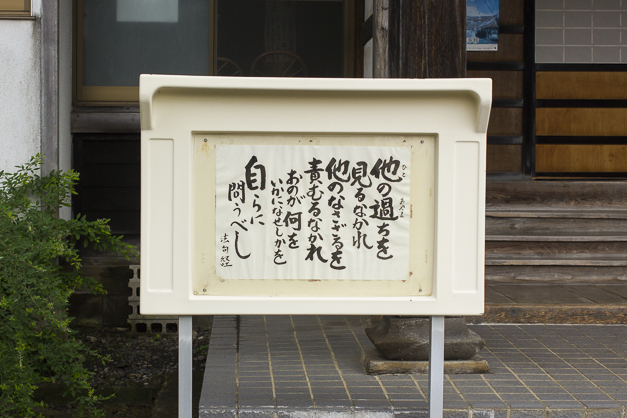 他の過ちを
見るなかれ
他のなさゞるを
責むるなかれ
おのが何を
いかになせしかを
自らに
問うべし
法句経